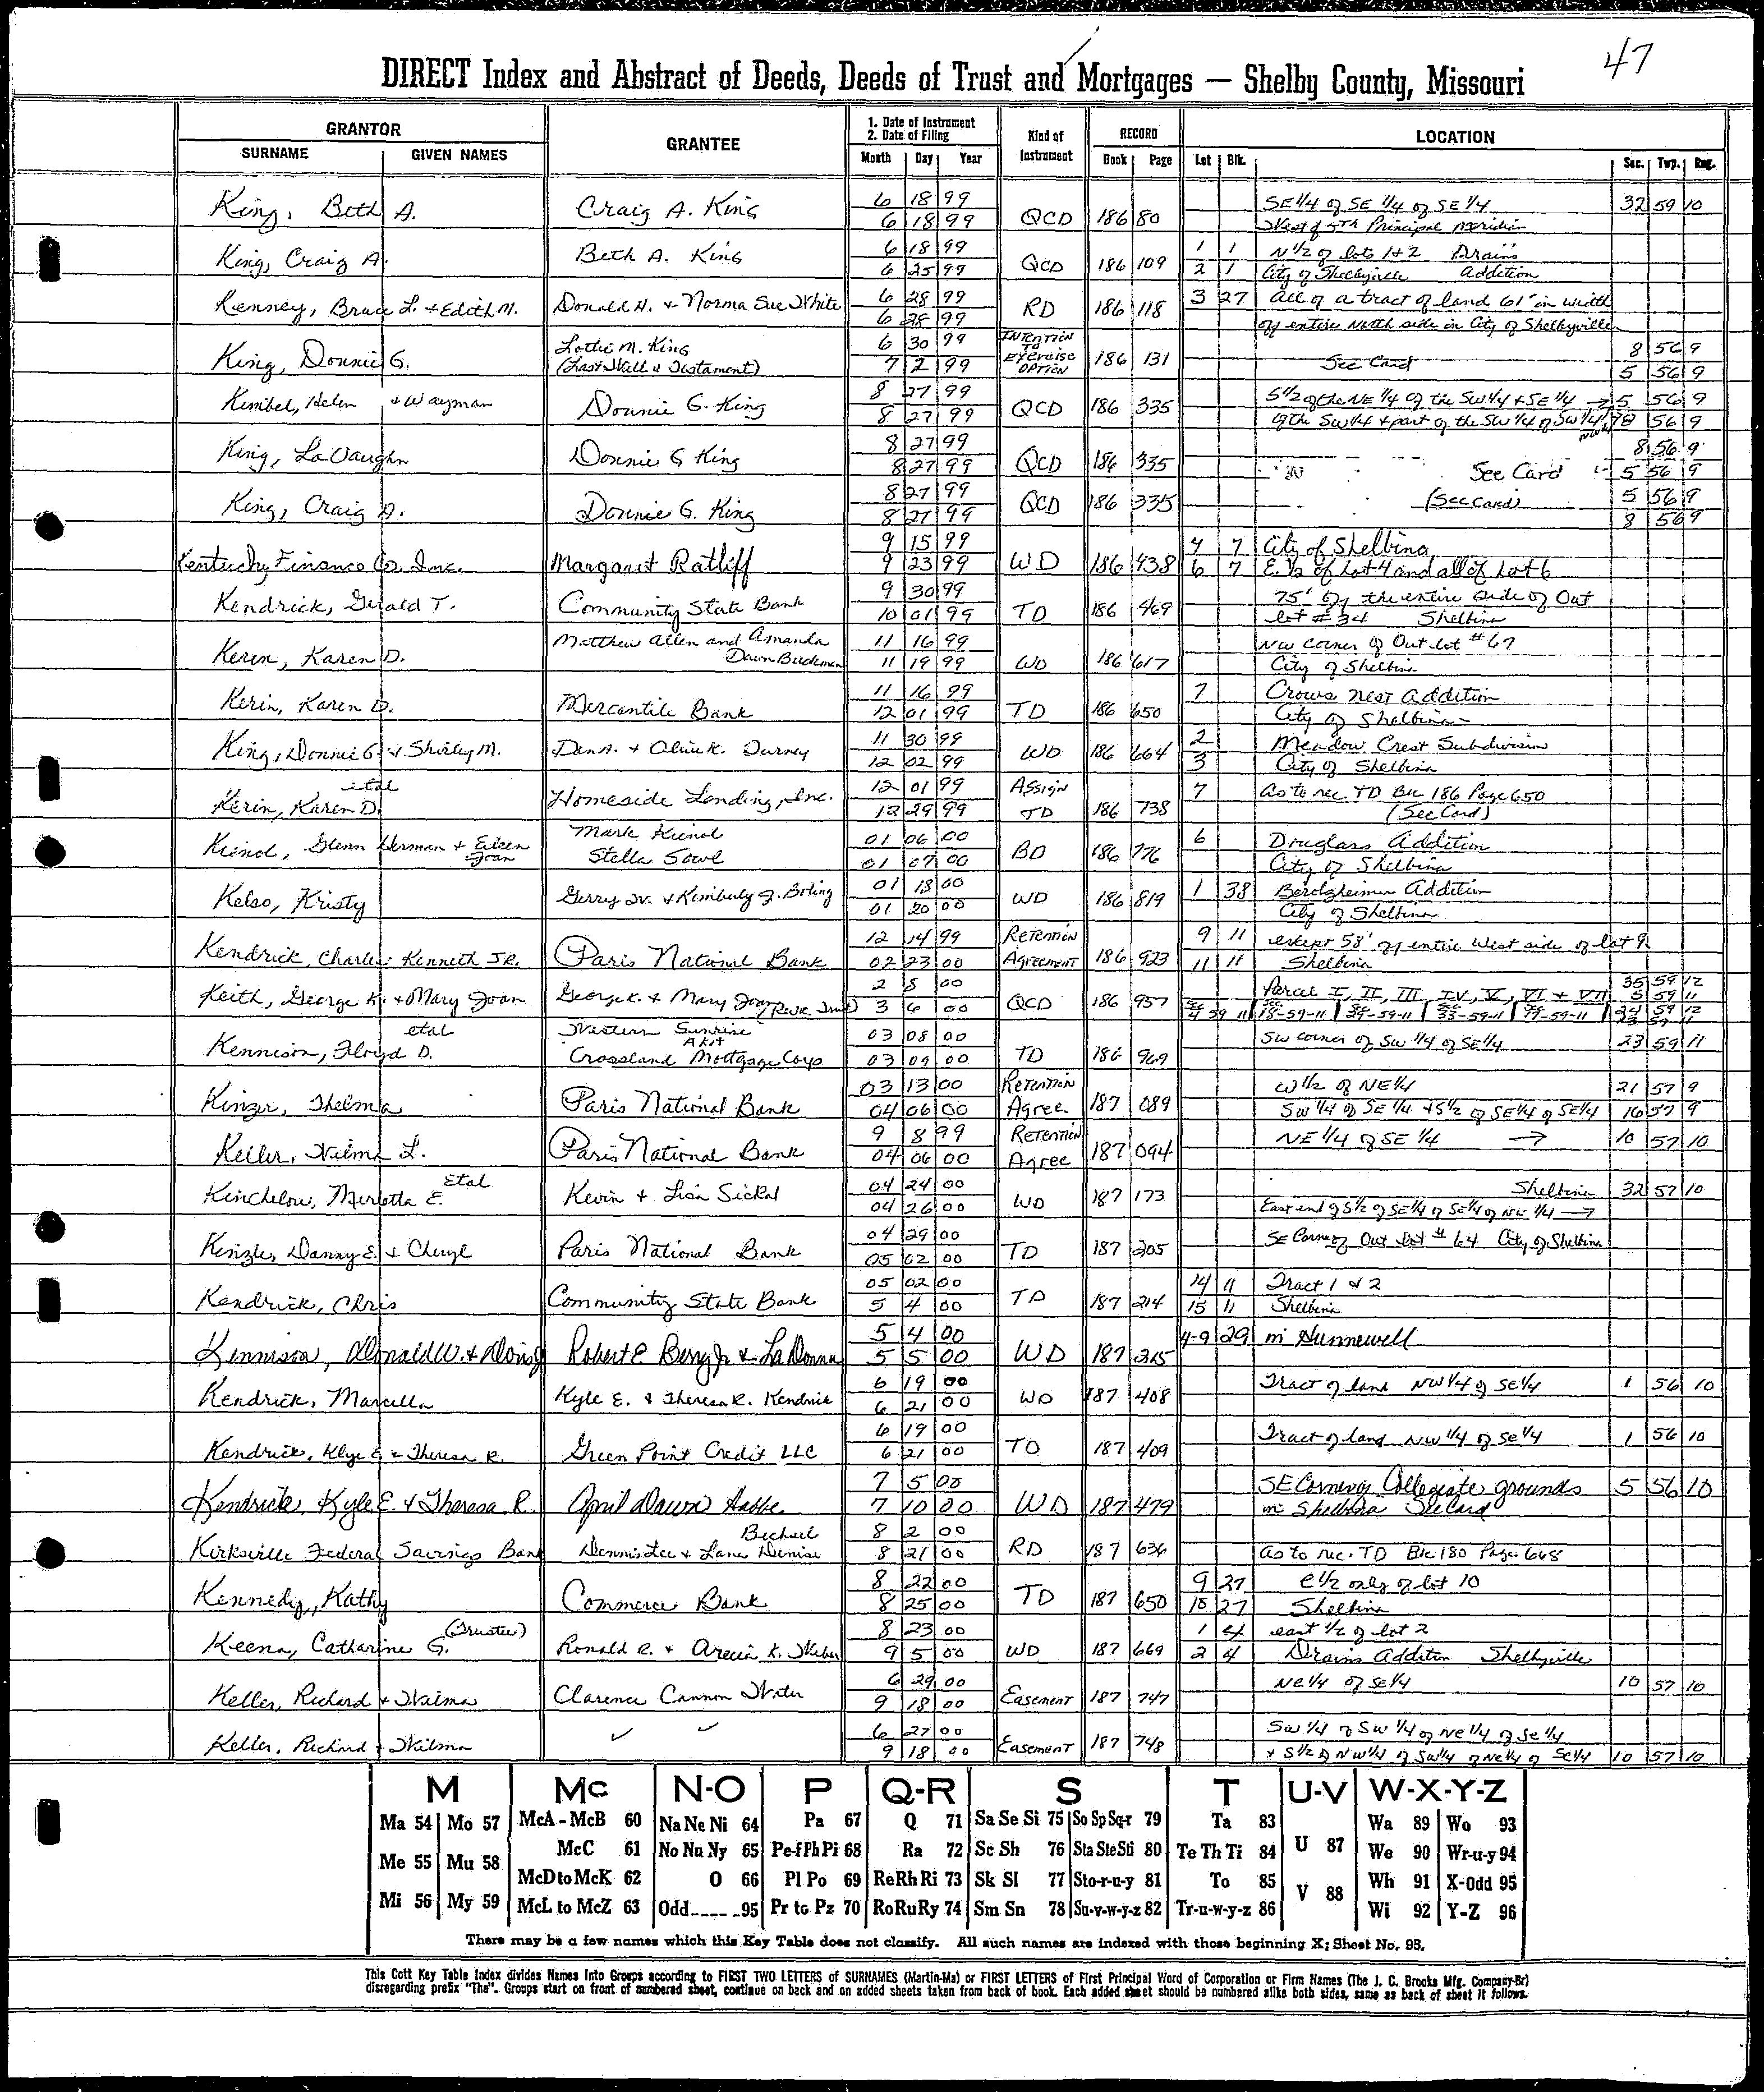 47
DIRECT Index and Abstract of Deeds, Deeds of Trust and Mortgages — Shelby County, Missouri
GRANTOR GRANTEE 1. Date of Instrument 2. Date of Filing Kind of Instrument RECORD LOCATION
SURNAME GIVEN NAMES Month Day Year Book Page Lot Blk. Sec. Twp. Rng.
King, Beth A. Craig A. King 6 18 99 QCD 186 80 SE 1/4 of SE 1/4 of SE 1/4 32 59 10
6 18 99 West of 5th Principal Meridian
King, Craig A. Beth A. King 6 18 99 QCD 186 109 1 1 N 1/2 of lots 1+2 Drains
6 25 99 2 1 City of Shelbyville Addition
Kenney, Bruce L. + Edith M. Donald H. + Norma Sue White 6 28 99 RD 186 118 3 27 all of a tract of land 61' in width
6 28 99 off entire North side in City of Shelbyville
King, Donnie G. Lottie M. King 6 30 99 INTENTION TO Exercise OPTION 186 131 See Card 8 56 9
(Last Will & Testament) 7 2 99 5 56 9
Kimbel, Helen + Wayman Donnie G. King 8 27 99 QCD 186 335 S 1/2 of the NE 1/4 of the SW 1/4 + SE 1/4 → 5 56 9
8 27 99 of the SW 1/4 + part of the SW 1/4 of SW 1/4 8 56 9
King, LaVaughn Donnie G King 8 27 99 QCD 186 335 8 56 9
8 27 99 See Card 5 56 9
King, Craig A. Donnie G. King 8 27 99 QCD 186 335 (See Card) 5 56 9
8 27 99 8 56 9
Kentucky Finance Co. Inc. Margaret Ratliff 9 15 99 WD 186 438 4 7 City of Shelbina
9 23 99 6 7 E. 1/2 of Lot 4 and all of Lot 6
Kendrick, Gerald T. Community State Bank 9 30 99 TD 186 469 75' off the entire side of Out
10 01 99 lot #34 Shelbina
Kerin, Karen D. Matthew Allen and Amanda 11 16 99 WD 186 617 NW corner of Out lot #67
Dawn Buckman 11 19 99 City of Shelbina
Kerin, Karen D. Mercantile Bank 11 16 99 TD 186 650 7 Crows Nest Addition
12 01 99 City of Shelbina
King, Donnie G. + Shirley M. Dan A. + Olive K. Turney 11 30 99 WD 186 664 2 Meadow Crest Subdivision
12 02 99 3 City of Shelbina
etal
Kerin, Karen D. Homeside Lending, Inc. 12 01 99 Assign TD 186 738 7 as to rec TD Bk 186 Page 650
12 29 99 (See Card)
Glenn Herman + Eileen Joan Mark 01 06 00 BD 186 776 6 Douglass Addition
Stella Sowl 01 07 00 City of Shelbina
Kelso, Kristy Gerry W. + Kimberly J. Boling 01 18 00 WD 186 819 1 38 Berolzheimer Addition
01 20 00 City of Shelbina
Kendrick, Charles Kenneth JR. Paris National Bank 12 14 99 Retention Agreement 186 923 9 11 except 58' off entire West side of lot 9
02 23 00 11 11 Shelbina
Keith, George K. + Mary Joan George K. + Mary Joan 2 8 00 QCD 186 957 Parcel I, II, III, IV, V, VI + VII 35 59 12
3 6 00 5 59 11
etal
Kennison, Floyd D. Western Sunrise AKA 03 08 00 TD 186 969 SW corner of SW 1/4 of SE 1/4 23 59 11
Crossland Mortgage Corp 03 09 00
Kinzer, Thelma Paris National Bank 03 13 00 Retention Agree. 187 089 W 1/2 of NE 1/4 21 57 9
04 06 00 SW 1/4 of SE 1/4 + S 1/2 of SE 1/4 of SE 1/4 16 57 9
Keller, Wilma L. Paris National Bank 9 8 99 Retention Agree 187 094 NE 1/4 of SE 1/4 → 10 57 10
04 06 00
Etal
Kinchelow, Merlotta E. Kevin + Lisa Sickal 04 24 00 WD 187 173 Shelbina 32 57 10
04 26 00 East end of S 1/2 of SE 1/4 of SE 1/4 of NE 1/4 →
Kinzle, Danny E. + Cheryl Paris National Bank 04 29 00 TD 187 205 SE Corner of Out lot #64 City of Shelbina
05 02 00
Kendrick, Chris Community State Bank 05 02 00 TD 187 214 14 11 Tract 1 & 2
5 4 00 15 11 Shelbina
Kennison, Donald W. + Robert E Berry Jr & LaDonna 5 4 00 WD 187 215 4-9 29 in Hunnewell
5 5 00
Kendrick, Marcella Kyle E. & Theresa R. Kendrick 6 19 00 WD 187 408 Tract of land NW 1/4 of SE 1/4 1 56 10
6 21 00
Kendrick, Klye E + Theresa R. Green Point Credit LLC 6 19 00 TD 187 409 Tract of land NW 1/4 of SE 1/4 1 56 10
6 21 00
Kendrick, Kyle E. & Theresa R. April Dawn 7 5 00 WD 187 479 SE Corner of Collegiate grounds 5 56 10
7 10 00 in Shelbina See Card
Kirksville Federal Savings Bank Bechtel 8 2 00 RD 187 636
Dennis Lee & Lana Denise 8 21 00 as to rec. TD Bk 180 Page 668
Kennedy, Kathy Commerce Bank 8 22 00 TD 187 650 9 27 E 1/2 only of lot 10
8 25 00 10 27 Shelbina
(Trustee)
Keena, Catharine G. Ronald R. + K. 8 23 00 WD 187 669 1 4 east 1/2 of lot 2
9 5 00 2 4 Drains Addition Shelbyville
Keller, Richard + Wilma Clarence Cannon Water 6 29 00 Easement 187 747 NE 1/4 of SE 1/4 10 57 10
9 18 00
Keller, Richard + Wilma ✓ ✓ 6 27 00 Easement 187 748 SW 1/4 of SW 1/4 of NE 1/4 of SE 1/4
9 18 00 + S 1/2 of NW 1/4 of SW 1/4 of NE 1/4 of SE 1/4 10 57 10
M Mc N-O P Q-R S T U-V W-X-Y-Z
Ma 54 Mo 57 McA-McB 60 Na Ne Ni 64 Pa 67 Q 71 Sa Se Si 75 So Sp Sq-r 79 Ta 83 U 87 Wa 89 Wo 93
Me 55 Mu 58 McC 61 No Nu Ny 65 Pe-f Ph Pi 68 Ra 72 Sc Sh 76 Sta Ste Sti 80 Te Th Ti 84 We 90 Wr-u-y 94
McD to McK 62 O 66 Pl Po 69 Re Rh Ri 73 Sk Sl 77 Sto-r-u-y 81 To 85 V 88 Wh 91 X-Odd 95
Mi 56 My 59 McL to McZ 63 Odd 95 Pr to Pz 70 Ro Ru Ry 74 Sm Sn 78 Su-v-w-y-z 82 Tr-u-w-y-z 86 Wi 92 Y-Z 96
There may be a few names which this Key Table does not classify. All such names are indexed with those beginning X; Sheet No. 95.
This Cott Key Table Index divides Names into Groups according to FIRST TWO LETTERS of SURNAMES (Martin-Ma) or FIRST LETTERS of First Principal Word of Corporation or Firm Names (The J. C. Brooks Mfg. Company-Br)
disregarding prefix "The". Groups start on front of numbered sheet, continue on back and on added sheets taken from back of book. Each added sheet should be numbered alike both sides, same as back of sheet it follows.